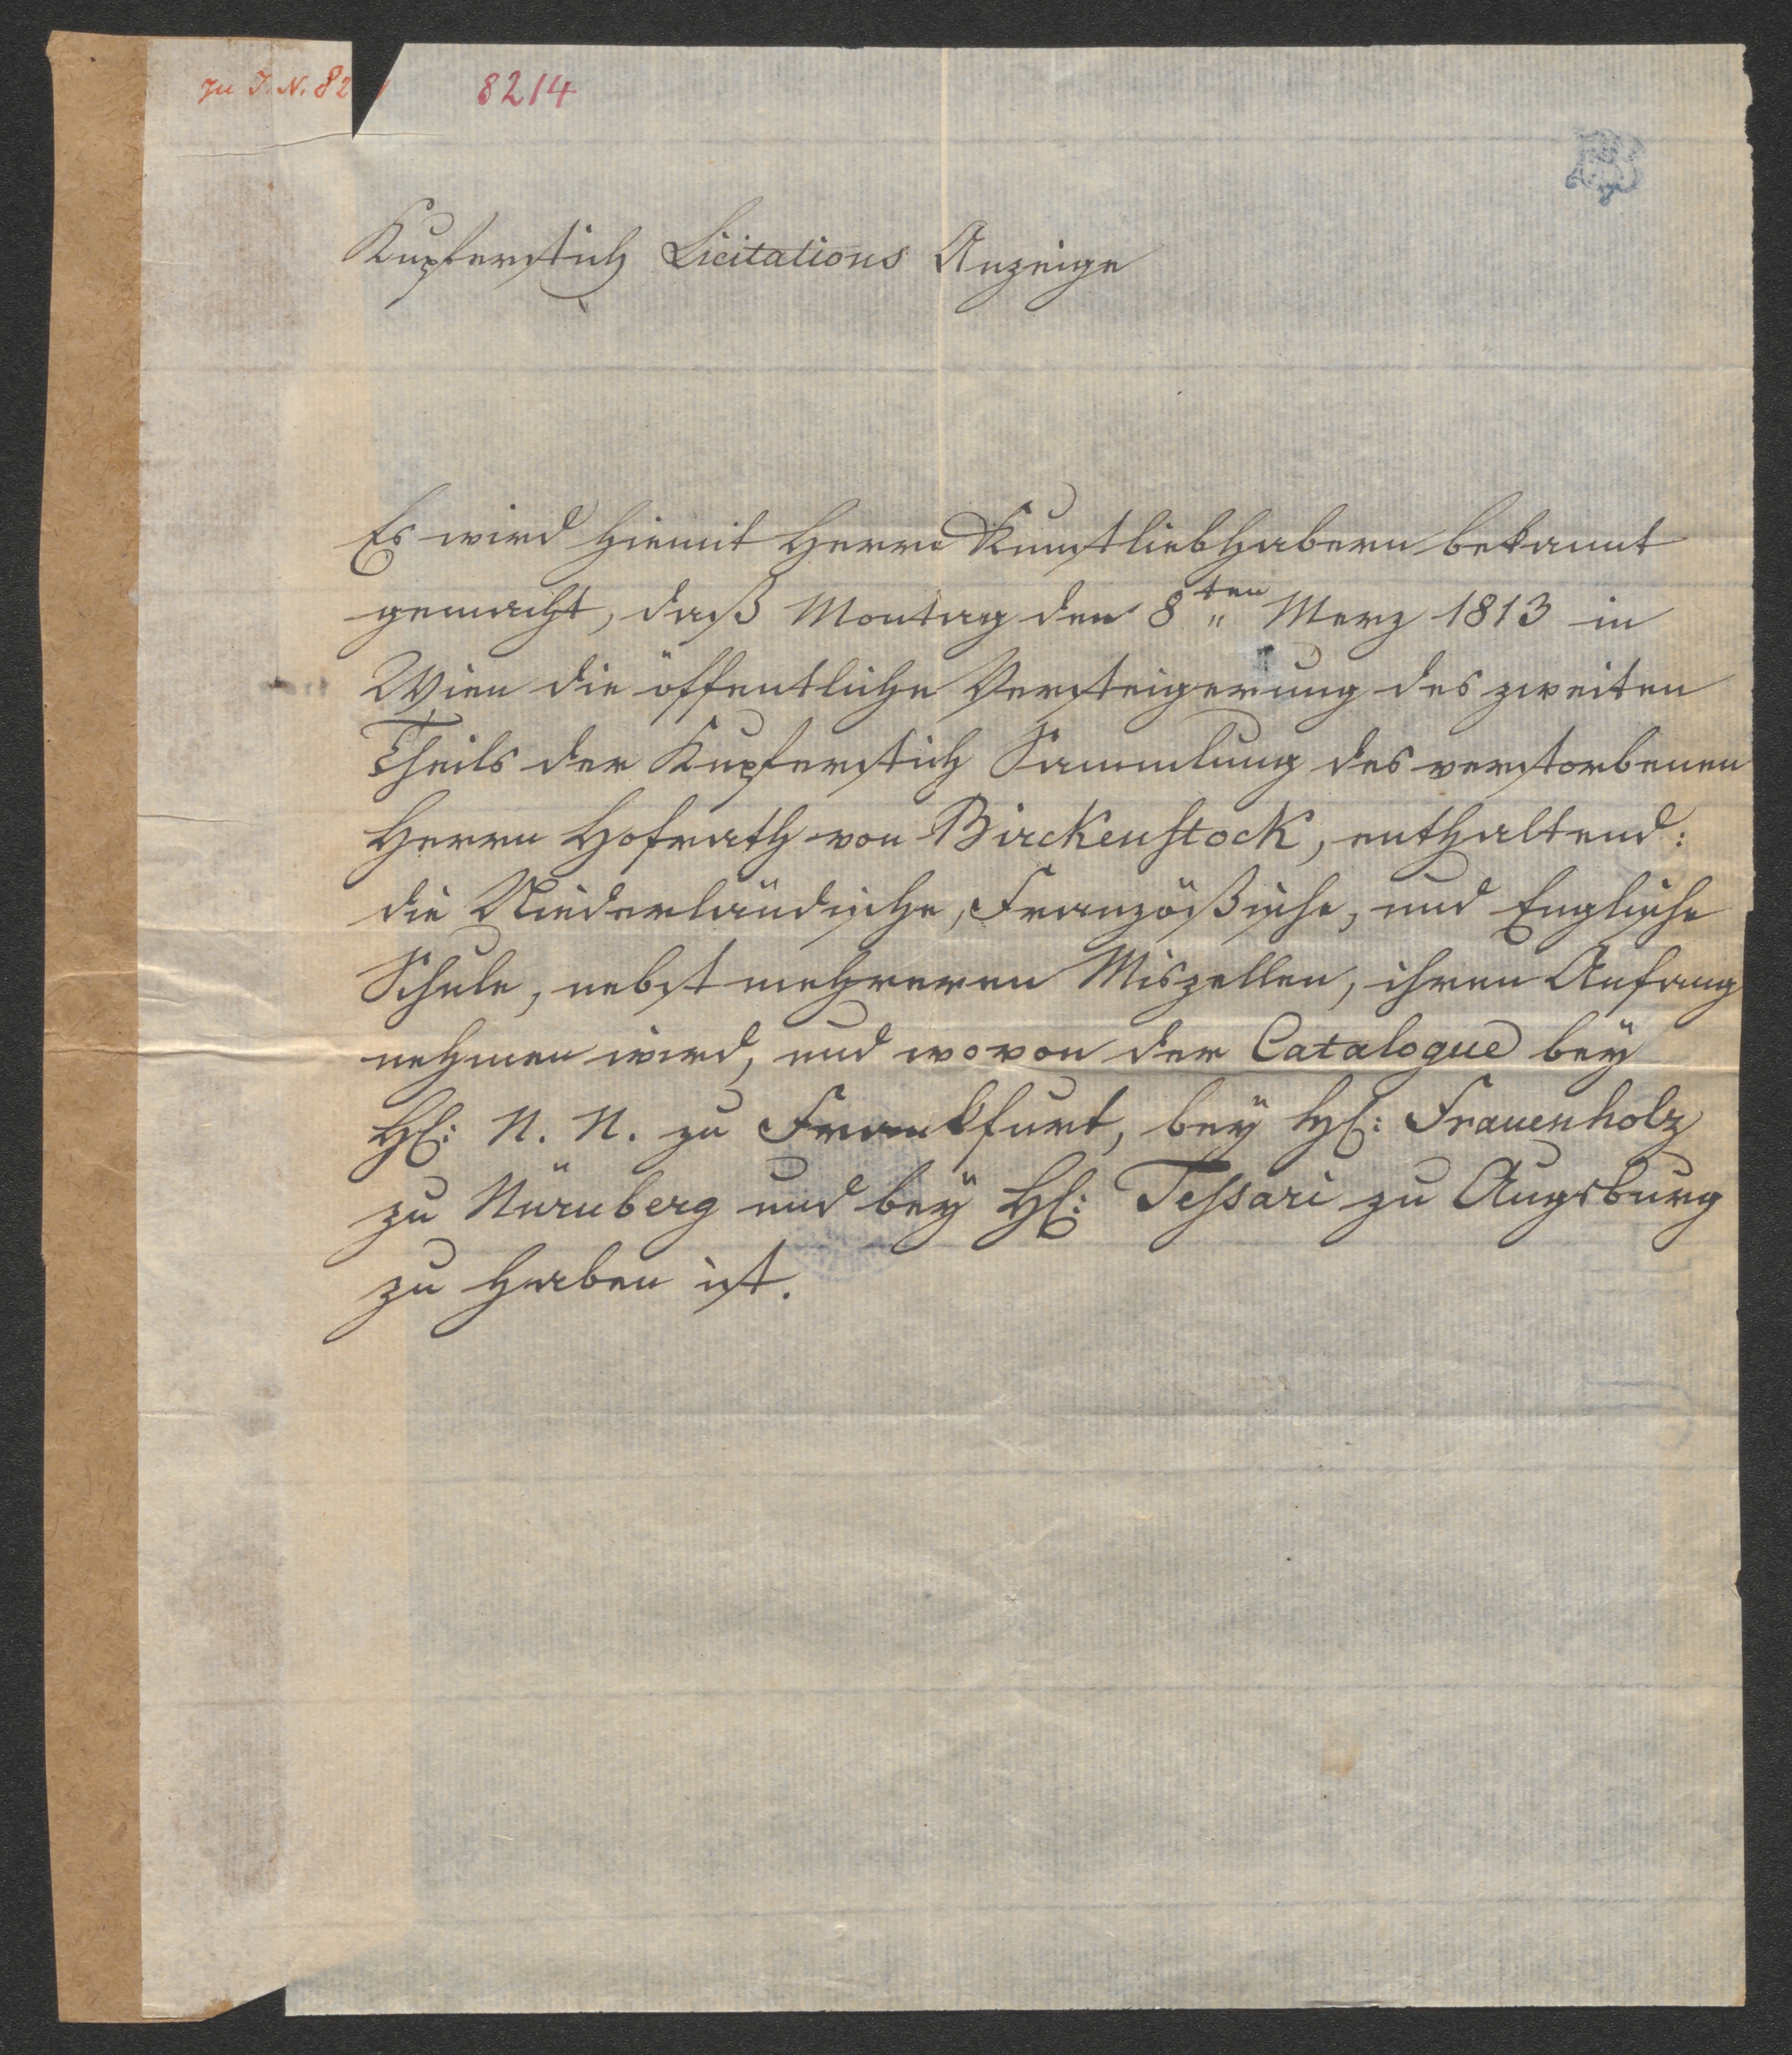 zu I. N. 82
8214
Kupferstich Licitations Anzeige
Es wird hiemit Herrn Kunstliebhabern bekannt
gemacht, daß Montag den 8ten Merz 1813 in
Wien die öffentliche Versteigerung des zweiten
Theils der Kupferstich Sammlung des verstorbenen
Herrn Hofrath von Birckenstock, enthaltend:
die Niederländische, Französische, und Englische
Schule, nebst mehreren Miszellen, ihren Anfang
nehmen wird, und wovon der Catalogue beÿ
H: N. N. zu Frankfurt, beÿ H: Frauenholz
zu Nürnberg und beÿ H: Tessari zu Augsburg
zu haben ist.